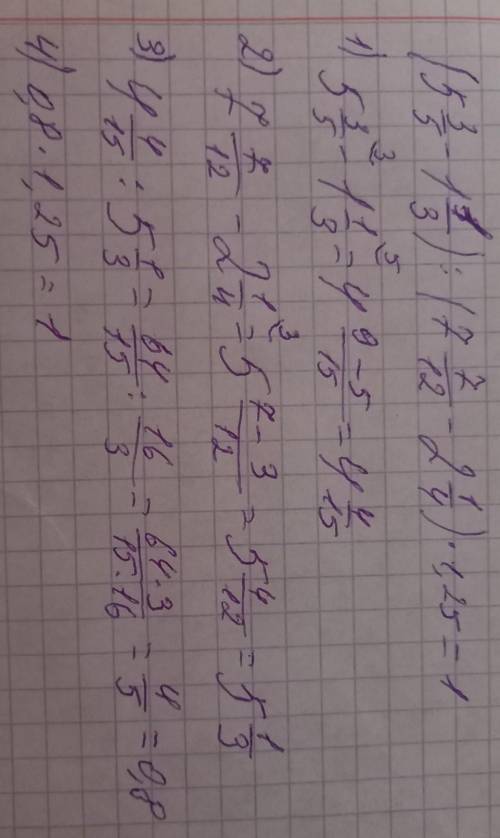 (5 3/5 - 1 1/3) : (7 7/12 - 2 1/4) · 1,25 = 1
1) 5 3/5 ⁽³ - 1 1/3 ⁽⁵ = 4 9-5/15 = 4 4/15
2) 7 7/12 - 2 1/4 ⁽³ = 5 7-3/12 = 5 4/12 = 5 1/3
3) 4 4/15 : 5 1/3 = 64/15 : 16/3 = 64·3/15·16 = 4/5 = 0,8
4) 0,8 · 1,25 = 1